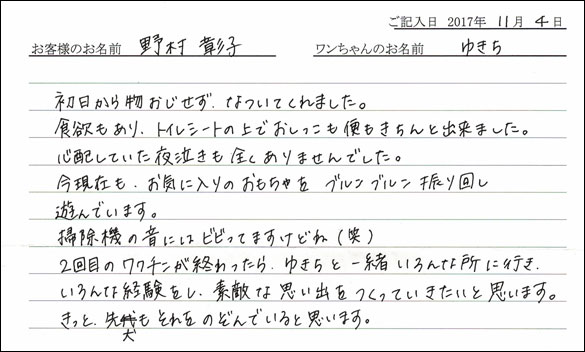 ご記入日 2017年 11月 4日
お客様のお名前 野村 彰子 ワンちゃんのお名前 ゆきち
初日から物おじせず、なついてくれました。
食欲もあり、トイレシートの上でおしっこも便もきちんと出来ました。
心配していた夜泣きも全くありませんでした。
今現在も、お気に入りのおもちゃを ブルンブルン振り回し
遊んでいます。
掃除機の音にはビビってますけどね(笑)
2回目のワクチンが終わったら、ゆきちと一緒いろんな所に行き、
いろんな経験をし、素敵な思い出をつくっていきたいと思います。
きっと、先犬もそれをのぞんでいると思います。